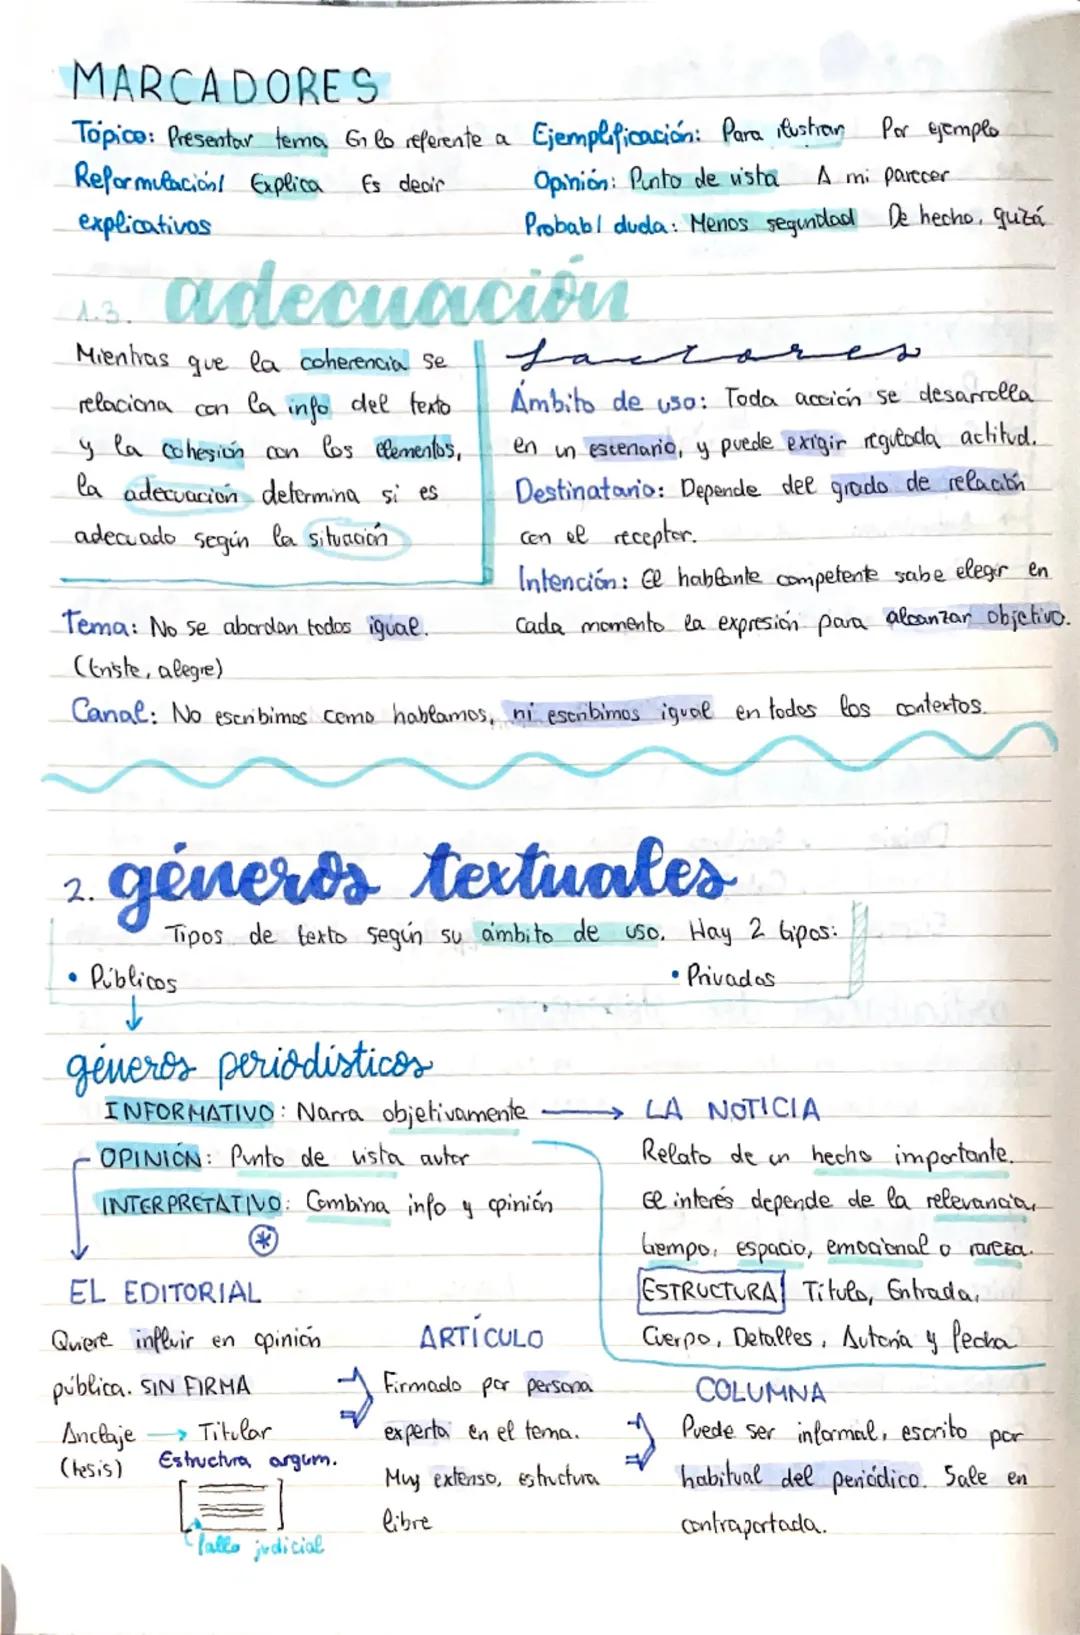 MARCADORES
Tópico: Presentar tema En lo referente a
Reformulación/ Explica Es decir
explicativos
Ejemplificación: Para ilustrar Por ejemplo
Opinión: Punto de vista A mi parecer
Probabl duda: Menos seguridad De hecho, quizá
1.3. adecuación
Mientras que la coherencia se
relaciona con la info del texto
y la cohesión con los elementos,
la adecuación determina si es
adecuado según la situación
factores
Ámbito de uso: Toda acción se desarrolla
en un escenario, y puede exigir regulada actitud.
Destinatario: Depende del grado de relación
con el receptor.
Intención: El hablante competente sabe elegir en
cada momento la expresión para alcanzar objetivo.
Tema: No se abordan todos igual.
(triste, alegre)
Canal: No escribimos como hablamos, ni escribimos igual en todos los contextos.
2. géneros textuales
Tipos de texto según su ámbito de uso. Hay 2 tipos:
• Públicos
• Privados
géneros periodísticos
INFORMATIVO: Narra objetivamente →
OPINIÓN: Punto de vista autor
INTERPRETATIVO: Combina info y opinión
*
LA NOTICIA
Relato de un hecho importante.
El interés depende de la relevancia,
tiempo, espacio, emocional o rareza.
ESTRUCTURA Título, Entrada,
Cuerpo, Detalles, Autoría y fecha
EL EDITORIAL
Quiere influir en opinión
pública. SIN FIRMA
Anclaje → Titular
(tesis) Estructura argum.
fallo judicial
ARTÍCULO
Firmado por persona
experta en el tema.
Muy extenso, estructura
libre
COLUMNA
Puede ser informal, escrito por
habitual del periódico. Sale en
contraportada.